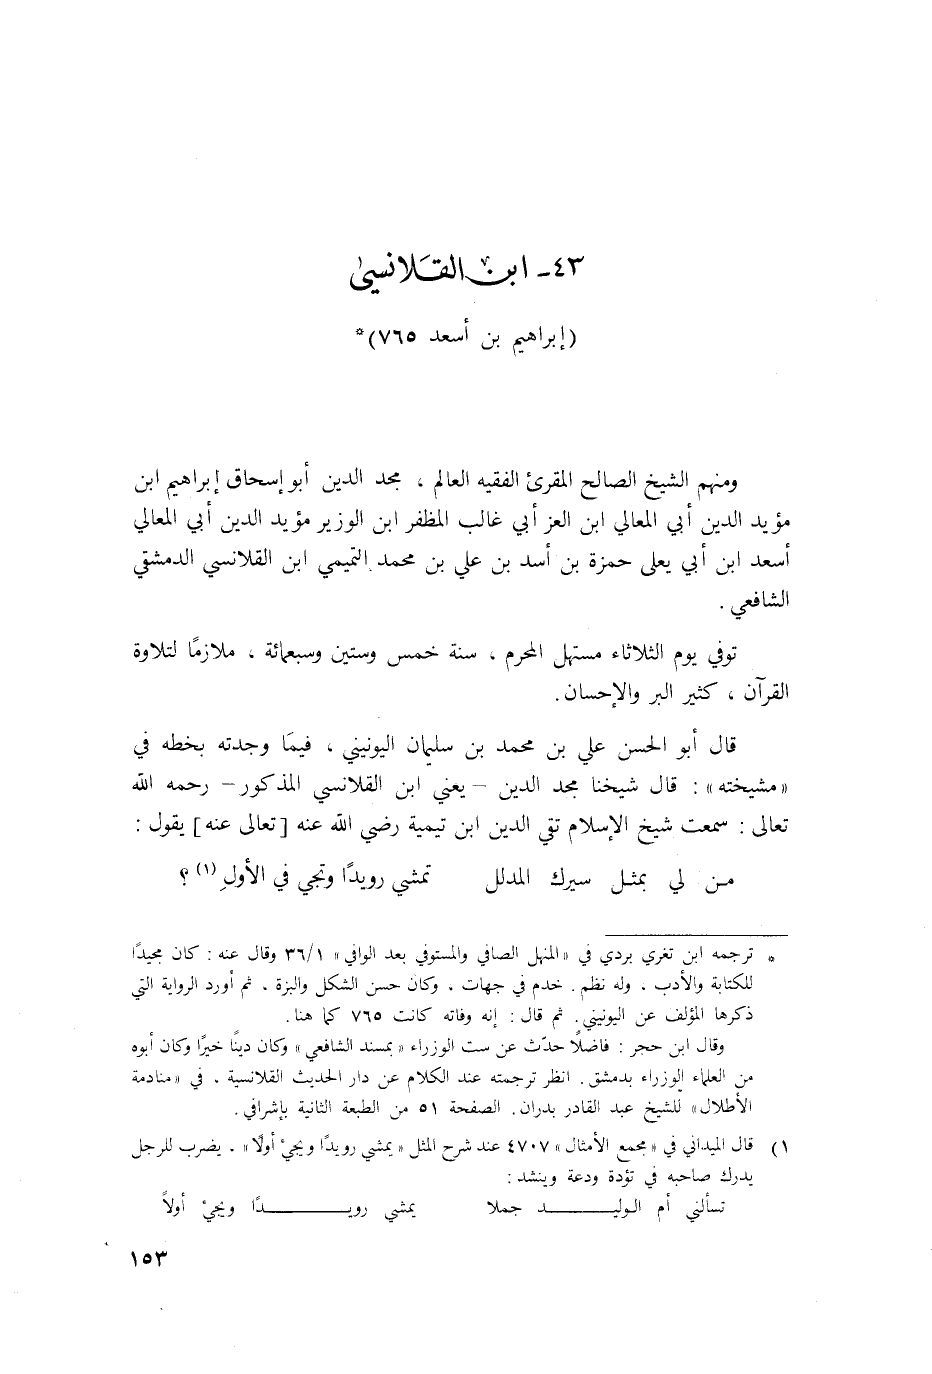 ٤٣ـ ابن القلانسي
(إبراهيم بن أسعد ٧٦٥)*
ومنهم الشيخ الصالح المقرئ الفقيه العالم ، مجد الدين أبو إسحاق إبراهيم ابن
مؤيد الدين أبي المعالي ابن العز أبي غالب المظفر ابن الوزير مؤيد الدين أبي المعالي
أسعد ابن أبي يعلى حمزة بن أسد بن علي بن محمد التميمي ابن القلانسي الدمشقي
الشافعي .
توفي يوم الثلاثاء مستهل المحرم ، سنة خمس وستين وسبعمائة ، ملازمًا لتلاوة
القرآن ، كثير البر والإحسان .
قال أبو الحسن علي بن محمد بن سليمان اليونيني ، فيمَا وجدته بخطه في
«مشيخته» : قال شيخنا مجد الدين – يعني ابن القلانسي المذكور – رحمه الله
تعالى : سمعت شيخ الإسلام تقي الدين ابن تيمية رضي الله عنه [تعالى عنه] يقول :
مـن لي بمثـل سيرك المدلل تمشي رويدًا وتجي في الأولِ (١) ؟
* ترجمه ابن تغري بردي في «المنهل الصافي والمستوفي بعد الوافي» ٣٦/١ وقال عنه : كان مجيدًا
للكتابة والأدب ، وله نظم . خدم في جهات ، وكان حسن الشكل والبزة . ثم أورد الرواية التي
ذكرها المؤلف عن اليونيني . ثم قال : إنه وفاته كانت ٧٦٥ كما هنا .
وقال ابن حجر : فاضلًا حدّث عن ست الوزراء «بمسند الشافعي» وكان دينًا خيرًا وكان أبوه
من العلماء الوزراء بدمشق . انظر ترجمته عند الكلام عن دار الحديث القلانسية ، في «منادمة
الأطلال» للشيخ عبد القادر بدران . الصفحة ٥١ من الطبعة الثانية بإشرافي .
١) قال الميداني في «مجمع الأمثال» ٤٧٠٧ عند شرح المثل «يمشي رويدًا ويجيْ أولًا» . يضرب للرجل
يدرك صاحبه في تؤدة ودعة وينشد :
تسألني أم الوليـــــد جملا يمشي رويـــــدًا ويجيْ أولاً
١٥٣